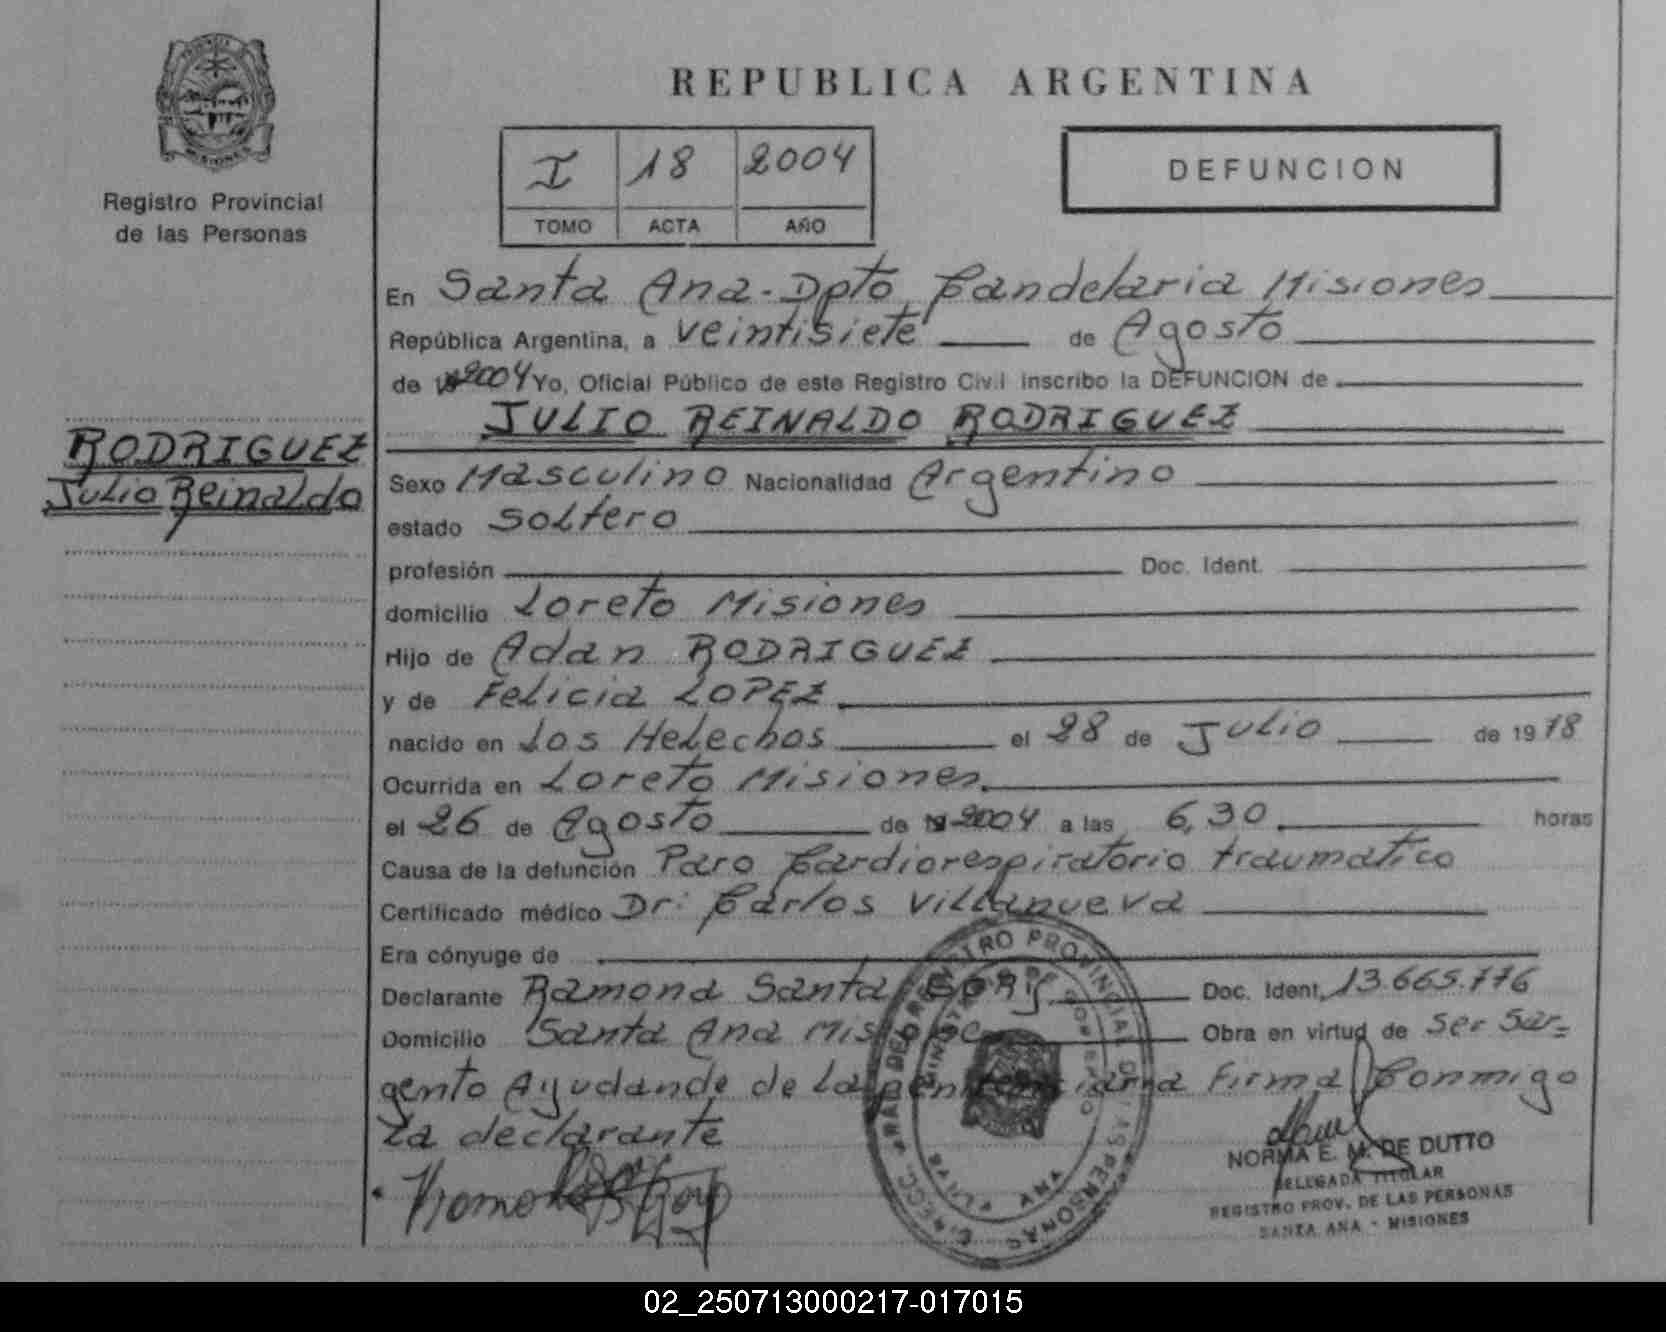 REPUBLICA ARGENTINA
PROVINCIA
MISIONES
Registro Provincial
de las Personas
I 18 2004
TOMO ACTA AÑO
DEFUNCION
En Santa Ana-Dpto Candelaria Misiones
República Argentina, a veintisiete de Agosto
de 2004 Yo, Oficial Público de este Registro Civil inscribo la DEFUNCION de
JULIO REINALDO RODRIGUEZ
RODRIGUEZ
Julio Reinaldo
Sexo Masculino Nacionalidad Argentino
estado Soltero
profesión Doc. Ident.
domicilio Loreto Misiones
Hijo de Adan RODRIGUEZ
y de Felicia LOPEZ
nacido en Los Helechos el 28 de Julio de 1978
Ocurrida en Loreto Misiones
el 26 de Agosto de 2004 a las 6,30 horas
Causa de la defunción Paro Cardiorespiratorio traumatico
Certificado médico Dr: Carlos Villanueva
Era cónyuge de
Declarante Ramona Santa Doc. Ident. 13.665.776
Domicilio Santa Ana Misiones Obra en virtud de Ser Sar=
gento Ayudande de La penitenciaria Firma Conmigo
La declarante
REGISTRO PROVINCIAL DE LAS PERSONAS
MINISTERIO DE GOBIERNO
NORMA E. M. DE DUTTO
DELEGADA TITULAR
REGISTRO PROV. DE LAS PERSONAS
SANTA ANA - MISIONES
02_250713000217-017015